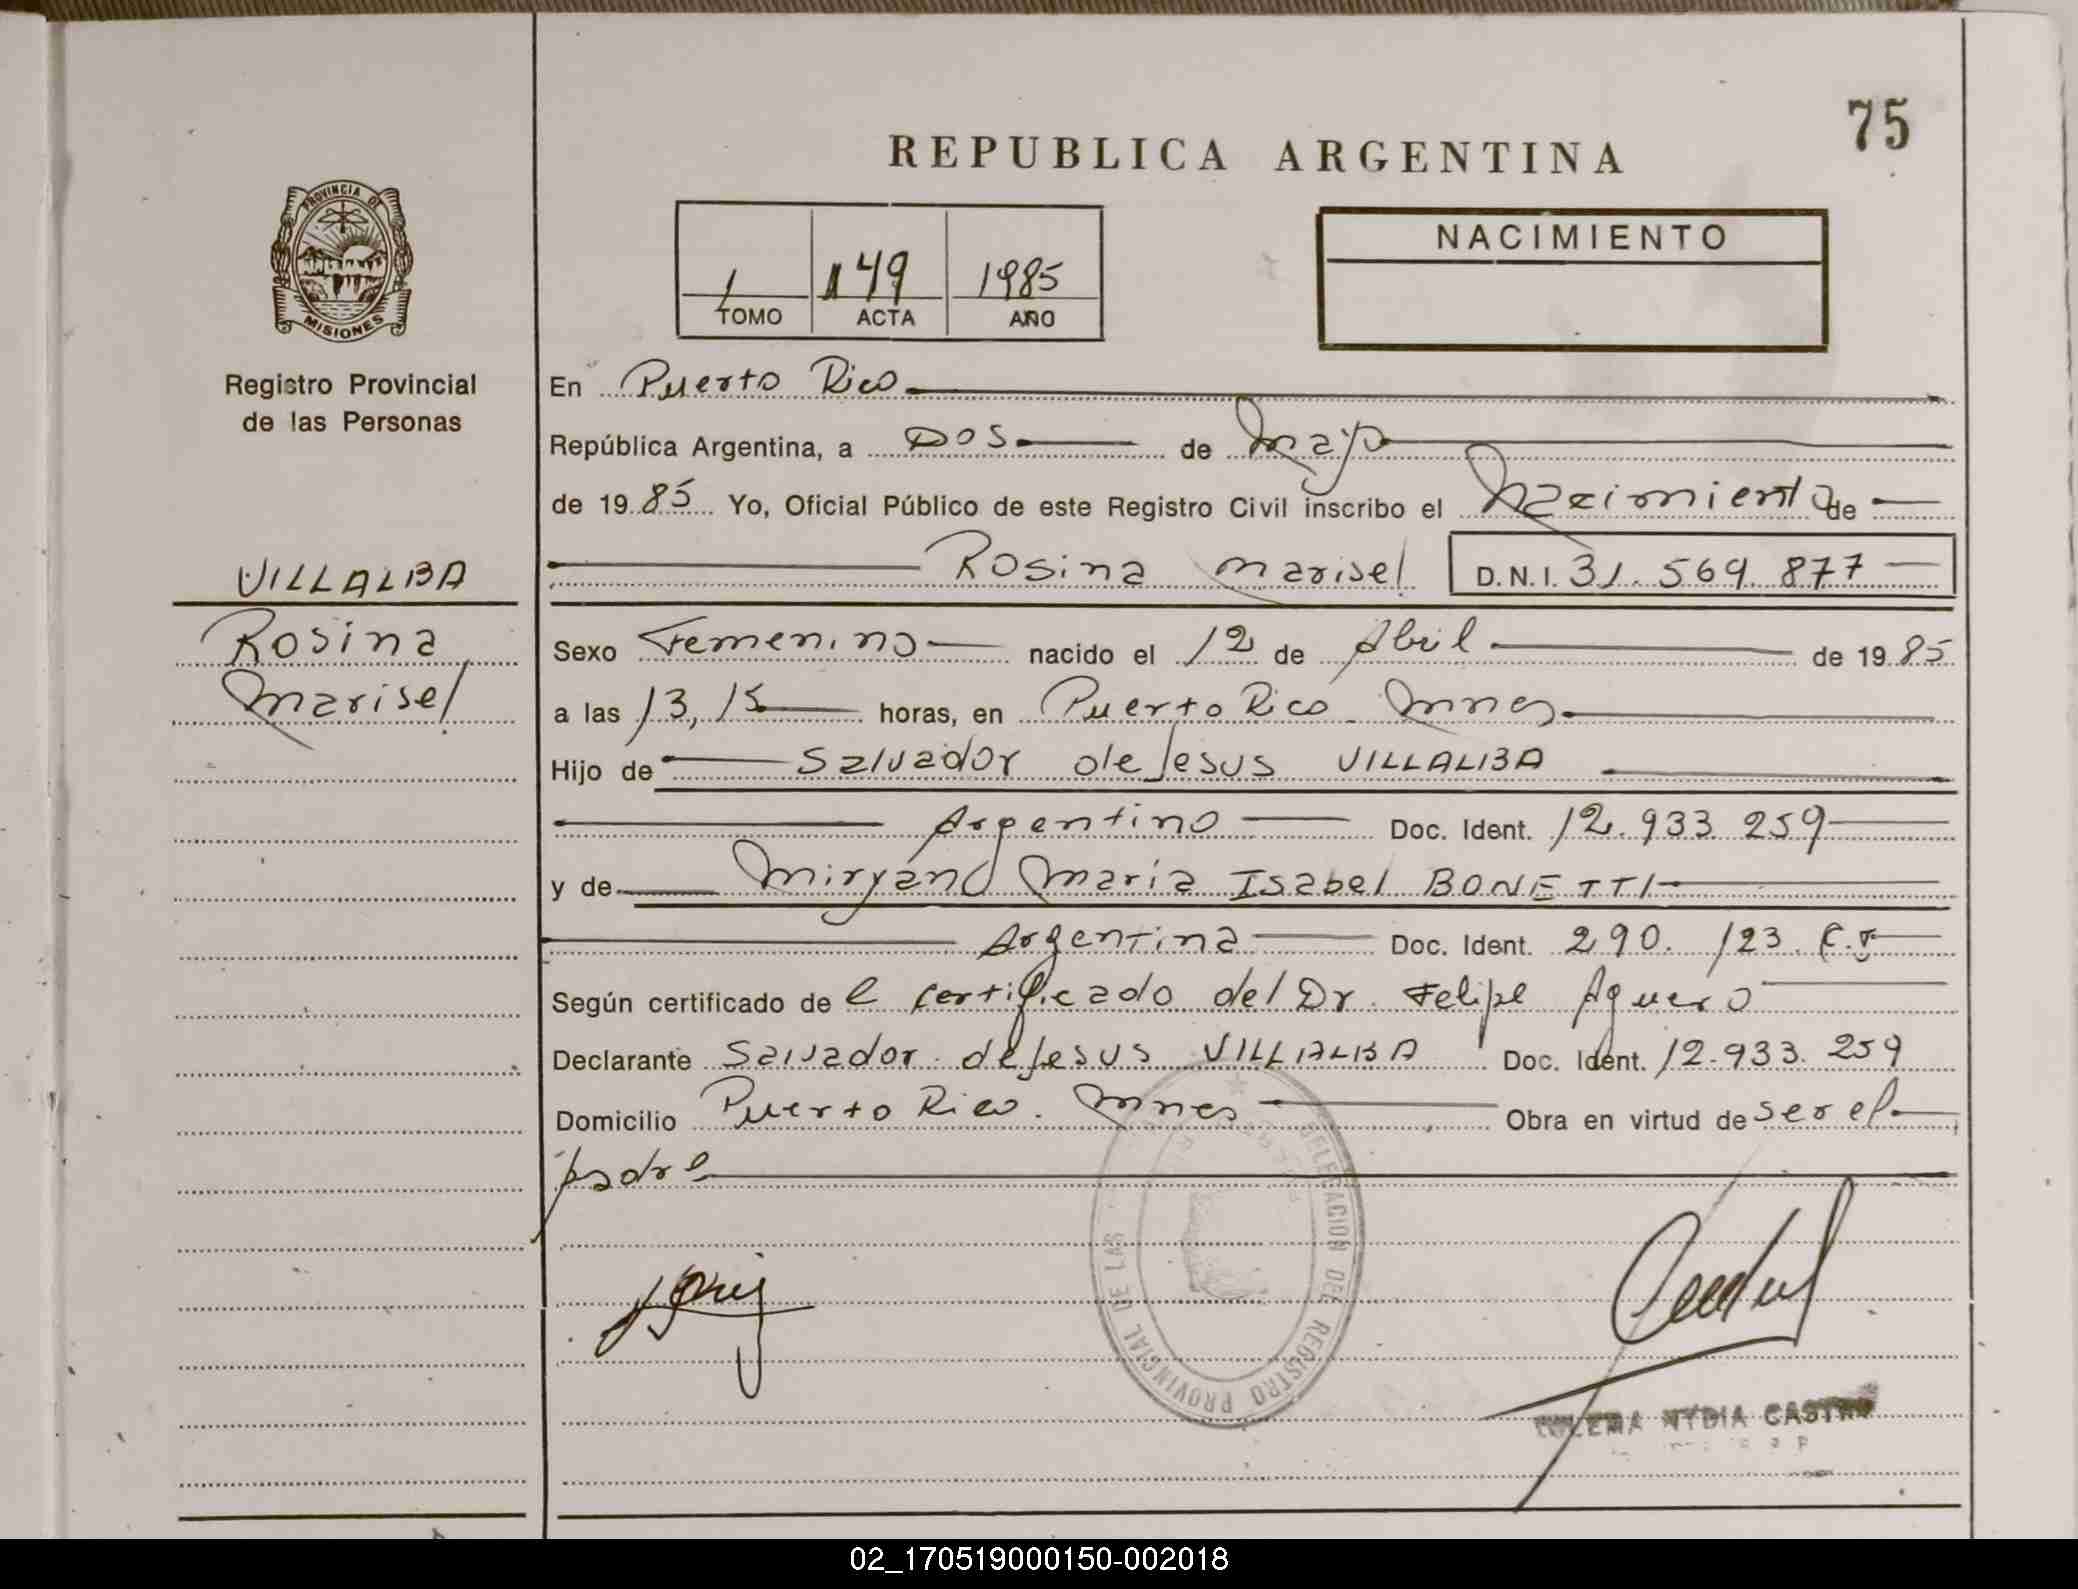 75
REPUBLICA ARGENTINA
PROVINCIA DE
MISIONES
Registro Provincial
de las Personas
1 149 1985
TOMO ACTA AÑO
NACIMIENTO
En Puerto Rico
República Argentina, a Dos de Mayo
de 1985 Yo, Oficial Público de este Registro Civil inscribo el Nacimiento de
Rosina Marisel D.N.I. 31.569.877
VILLALBA
Rosina
Marisel
Sexo Femenino nacido el 12 de Abril de 1985
a las 13,15 horas, en Puerto Rico Mnes
Hijo de Salvador de Jesus VILLALBA
Argentino Doc. Ident. 12.933 259
y de Miryan Maria Isabel BONETTI
Argentina Doc. Ident. 290.123.
Según certificado de el certificado del Dr. Felipe Aguero
Declarante Salvador de Jesus VILLALBA Doc. Ident. 12.933.259
Domicilio Puerto Rico. Mnes Obra en virtud de ser el
padre
DELEGACION DEL REGISTRO PROVINCIAL DE LAS
NYDIA CASTRO
02_170519000150-002018